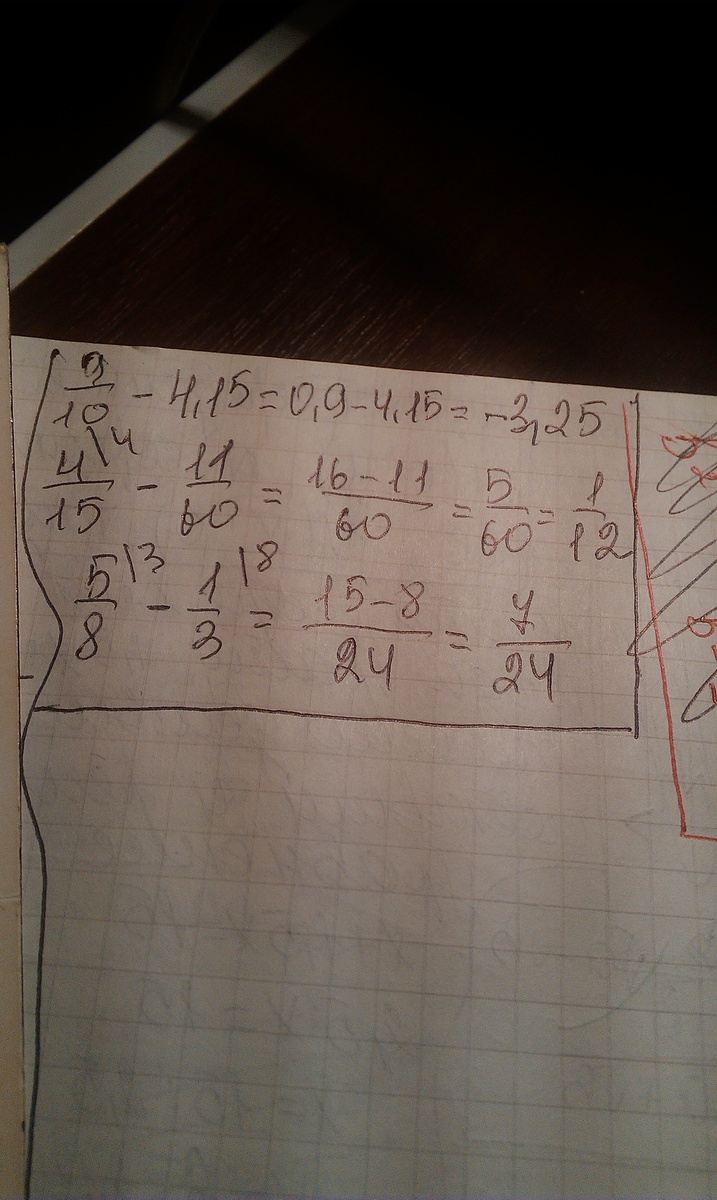 9/10 - 4,15 = 0,9 - 4,15 = -3,25
4\4/15 - 11/60 = 16-11/60 = 5/60 = 1/12
5\3/8 - 1\8/3 = 15-8/24 = 7/24